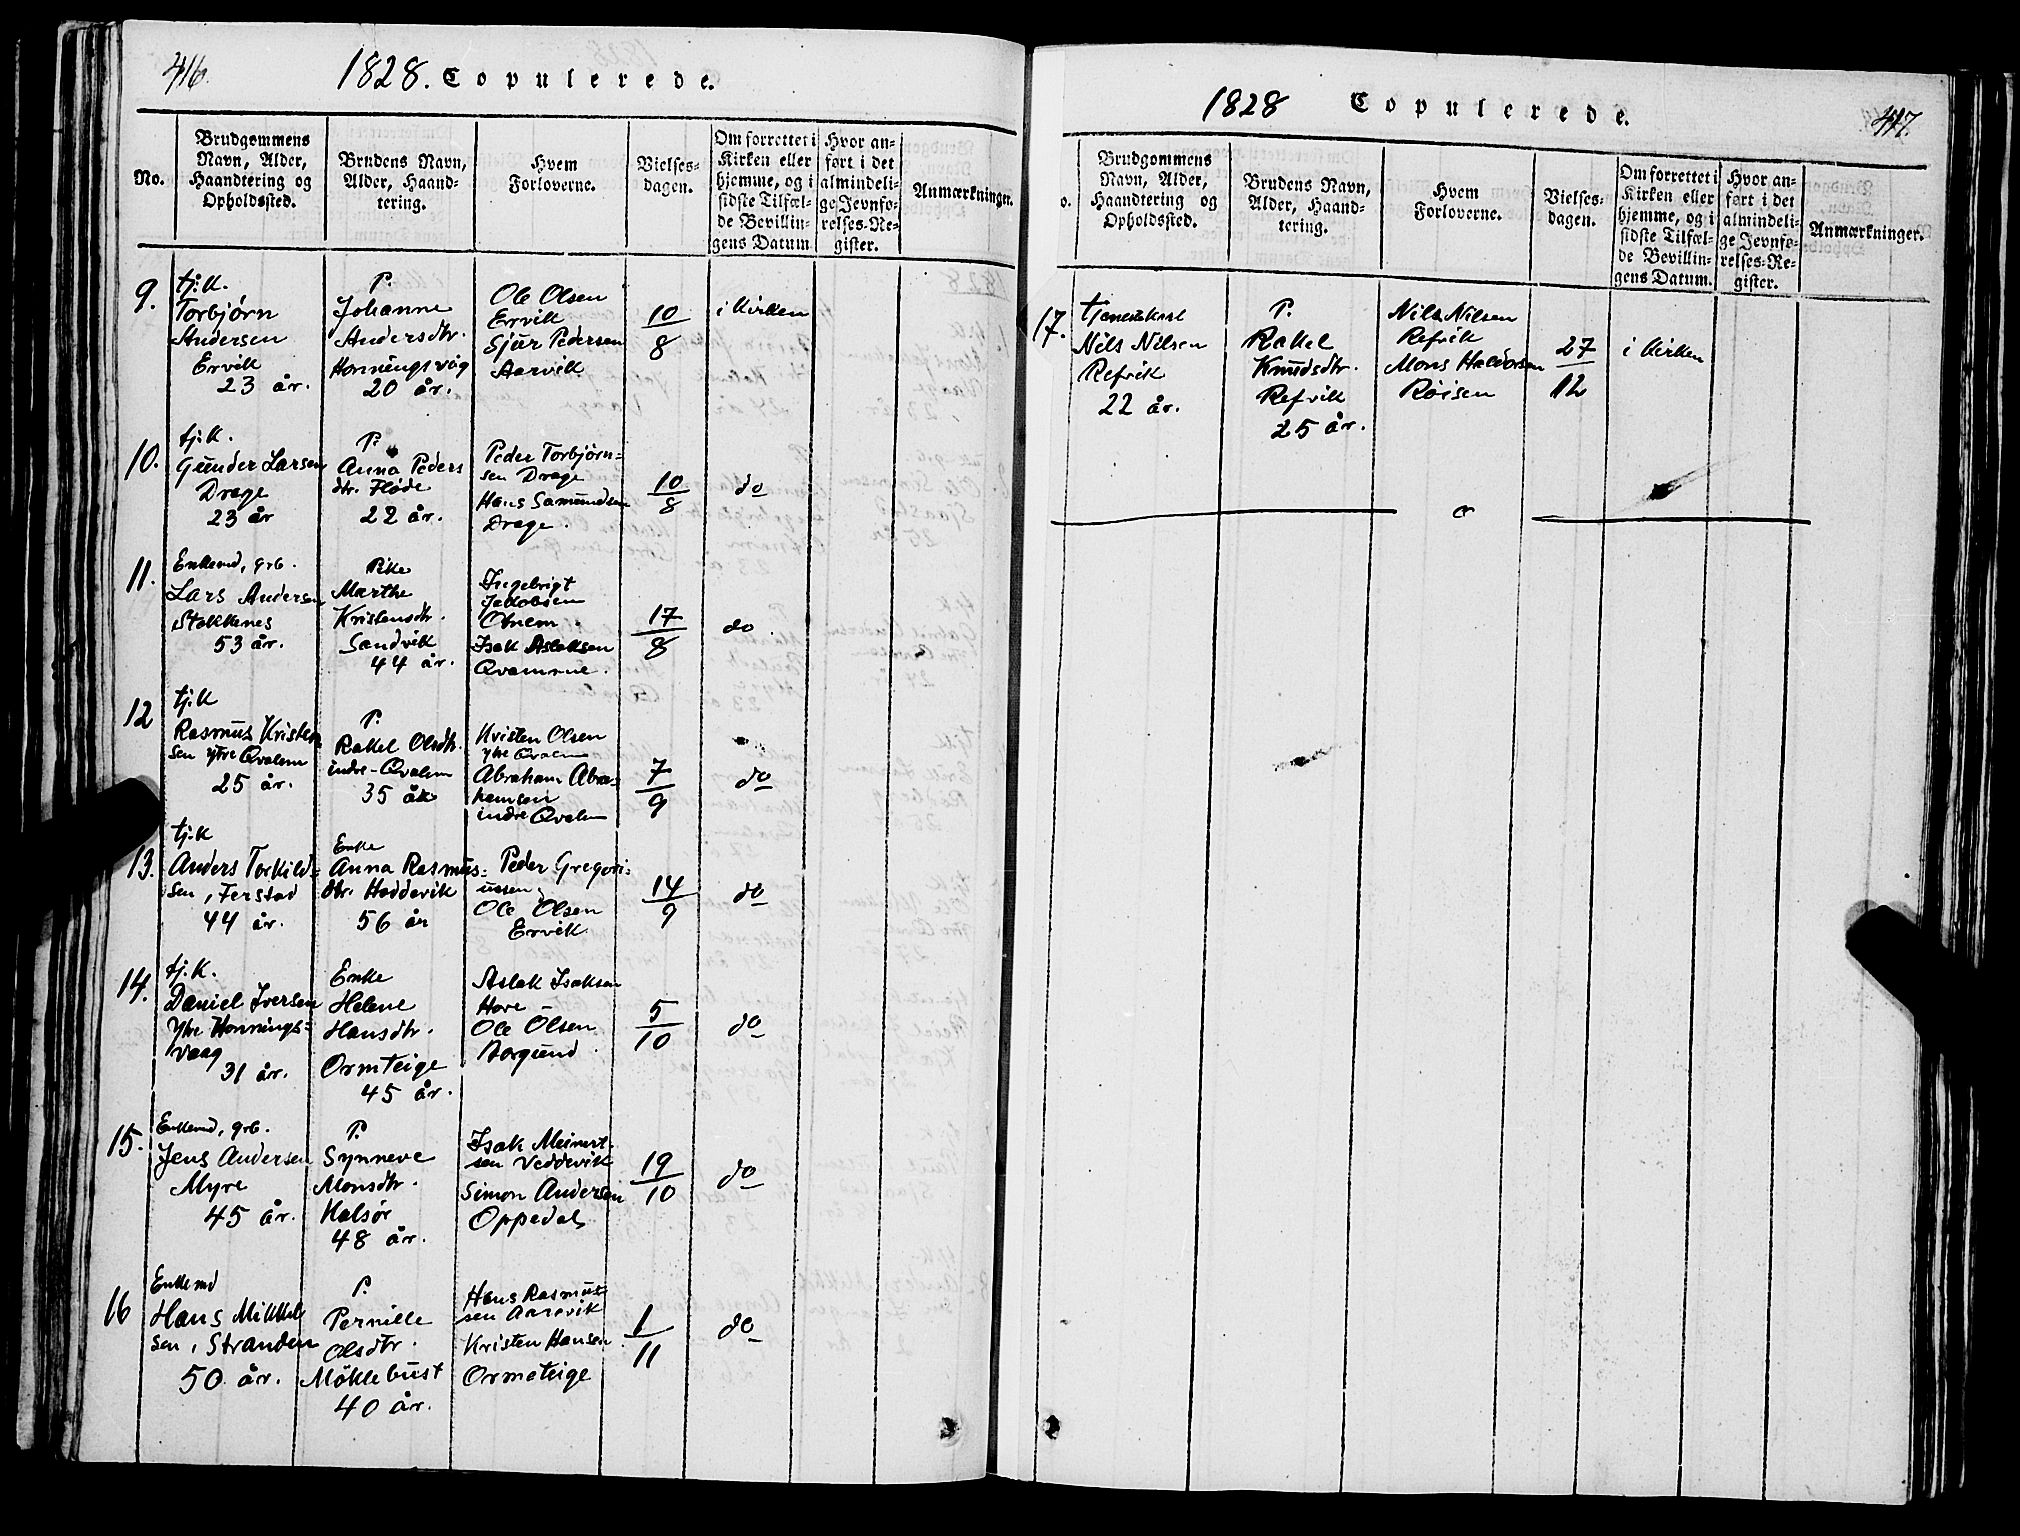 416.
1828. Copulerede.
No.
Brudgommens
Navn, Alder,
Haandtering og
Opholdssted.
Brudens Navn,
Alder, Haand-
tering.
Hvem
Forloverne.
Vielses-
dagen.
Om forrettet i
Kirken eller
hjemme, og i
sidste Tilfæl-
de Bevillin-
gens Datum
Hvor an-
ført i det
almindeli-
ge Jevnfø-
relses-Re-
gister.
Anmærkninger.
9.
tj.K.
Torbjørn
Andersen
Ervik
23 år.
P.
Johanne
Andersdtr.
Honningsvåg
20 år.
Ole Olsen
Ervik
Sjur Pedersen
Aarvik
10/8
i Kirken
10.
tj.K.
Gunder Larsen
Drage
23 år
P.
Anna Peders
dtr. Fløde
22 år.
Peder Torbjørn=
sen Drage
Hans Samundsen
Drage.
10/8
do
11.
Enkemd, grb.
Lars Andersen
Stokkenes
53 år.
Pike
Marthe
Kristensdtr.
Sandvik
44 år.
Ingebrigt
Jakobsen
Otnem.
Isak Aslaksen
Qvamme.
17/8
do
12
tj.K
Rasmus Kristen
sen ytre Qvalem
25 år.
P.
Rakel Olsdtr.
indre-Qvalem
35 år
Kristen Olsen
ytre Qvalem
Abraham Abra-
hamsen
indre Qvalem
7/9
do
13.
tj.K
Anders Torkild=
sen, Ferstad
44 år.
Enke
Anna Rasmus=
dtr. Hoddevik
56 år
Peder Gregori=
ussen
Ole Olsen
Ervik
14/9
do
14.
tj.K.
Daniel Iversen
Ytre Honnings=
vaag
31 år.
Enke
Helene
Hansdtr.
Ormteige
45 år.
Aslak Isaksen
Hove
Ole Olsen
Aorgund
5/10
do
15.
Enkemd, grb.
Jens Andersen
Myre
45 år.
P.
Synneve
Monsdtr.
Halsør
48 år.
Isak Meinert-
sen Veddevik
Simon Andersen
Oppedal
19/10
do
16
Enkemd
Hans Mikkel
sen, Stranden
50 år.
P.
Pernille
Olsdtr.
Möklebust
40 år.
Hans Rasmus
sen Aarevik
Kristen Hansen
Ormeteige
1/11
do
1828 Copulerede.
417.
o.
Brudgommens
Navn, Alder,
Haandtering og
Opholdssted.
Brudens Navn,
Alder, Haand-
tering.
Hvem
Forloverne.
Vielses-
dagen.
Om forrettet i
Kirken eller
hjemme, og i
sidste Tilfæl-
de Bevillin-
gens Datum.
Hvor an-
ført i det
almindeli-
ge Jevnfø-
relses-Re-
gister.
Anmærkninger.
17.
tjenestekarl
Nils Nilsen
Refvik
22 år.
P.
Rakel
Knudsdtr.
Refvik
25 år.
Nils Nilsen
Refvik
Mons Halvorsen
Röisen
27/12
i Kirken